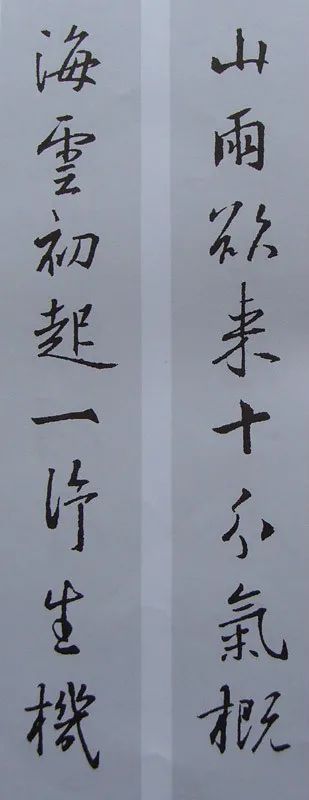 山雨欲来十分氣概
海雲初起一許生機